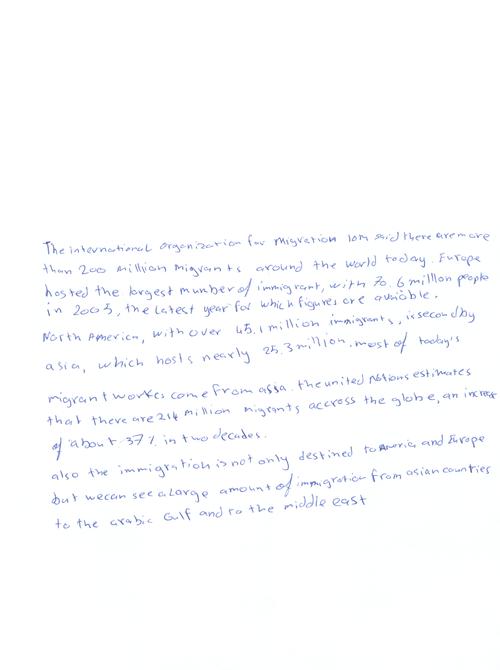 The international organization for Migration IOM said there are more
than 200 million migrants around the world today. Europe
hosted the largest munber of immigrant, with 70.6 million people
in 2005, the latest year for which figures are avaiable.
North America, with over 45.1 million immigrants, is second by
asia, which hosts nearly 25.3 million. most of today's
migrant workes come from asia. the united Nations estimates
that there are 214 million migrants accross the globe, an increas
of about 37% in two decades.
also the immigration is not only destined to America and Europe
but we can see a large amount of immigration from asian counties
to the arabic Gulf and to the middle east